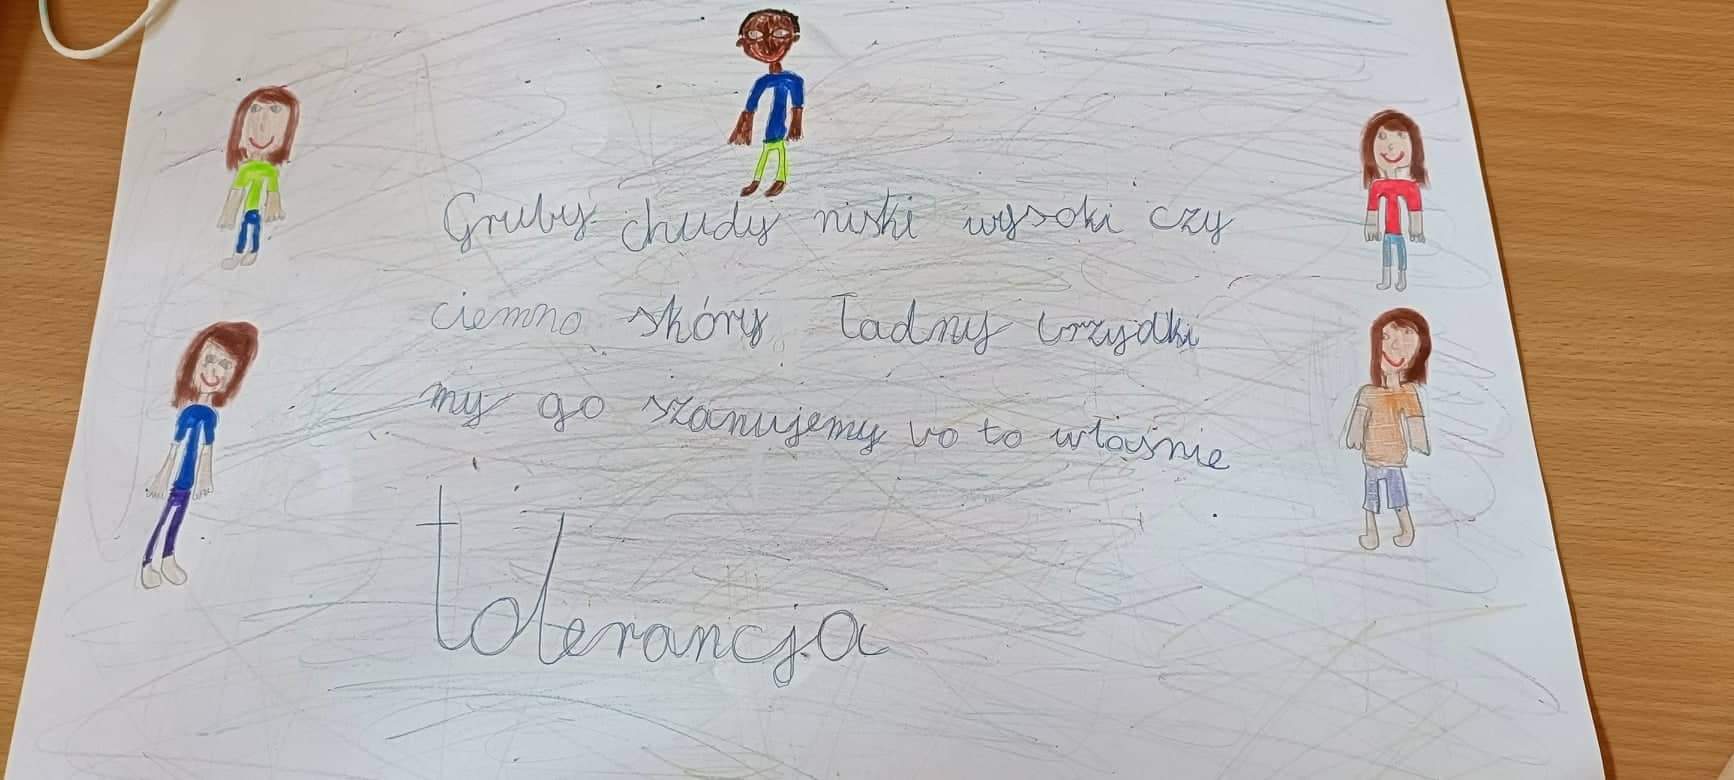 Gruby chudy niski wysoki czy
ciemno skóry ładny brzydki
my go szanujemy bo to właśnie
tolerancja